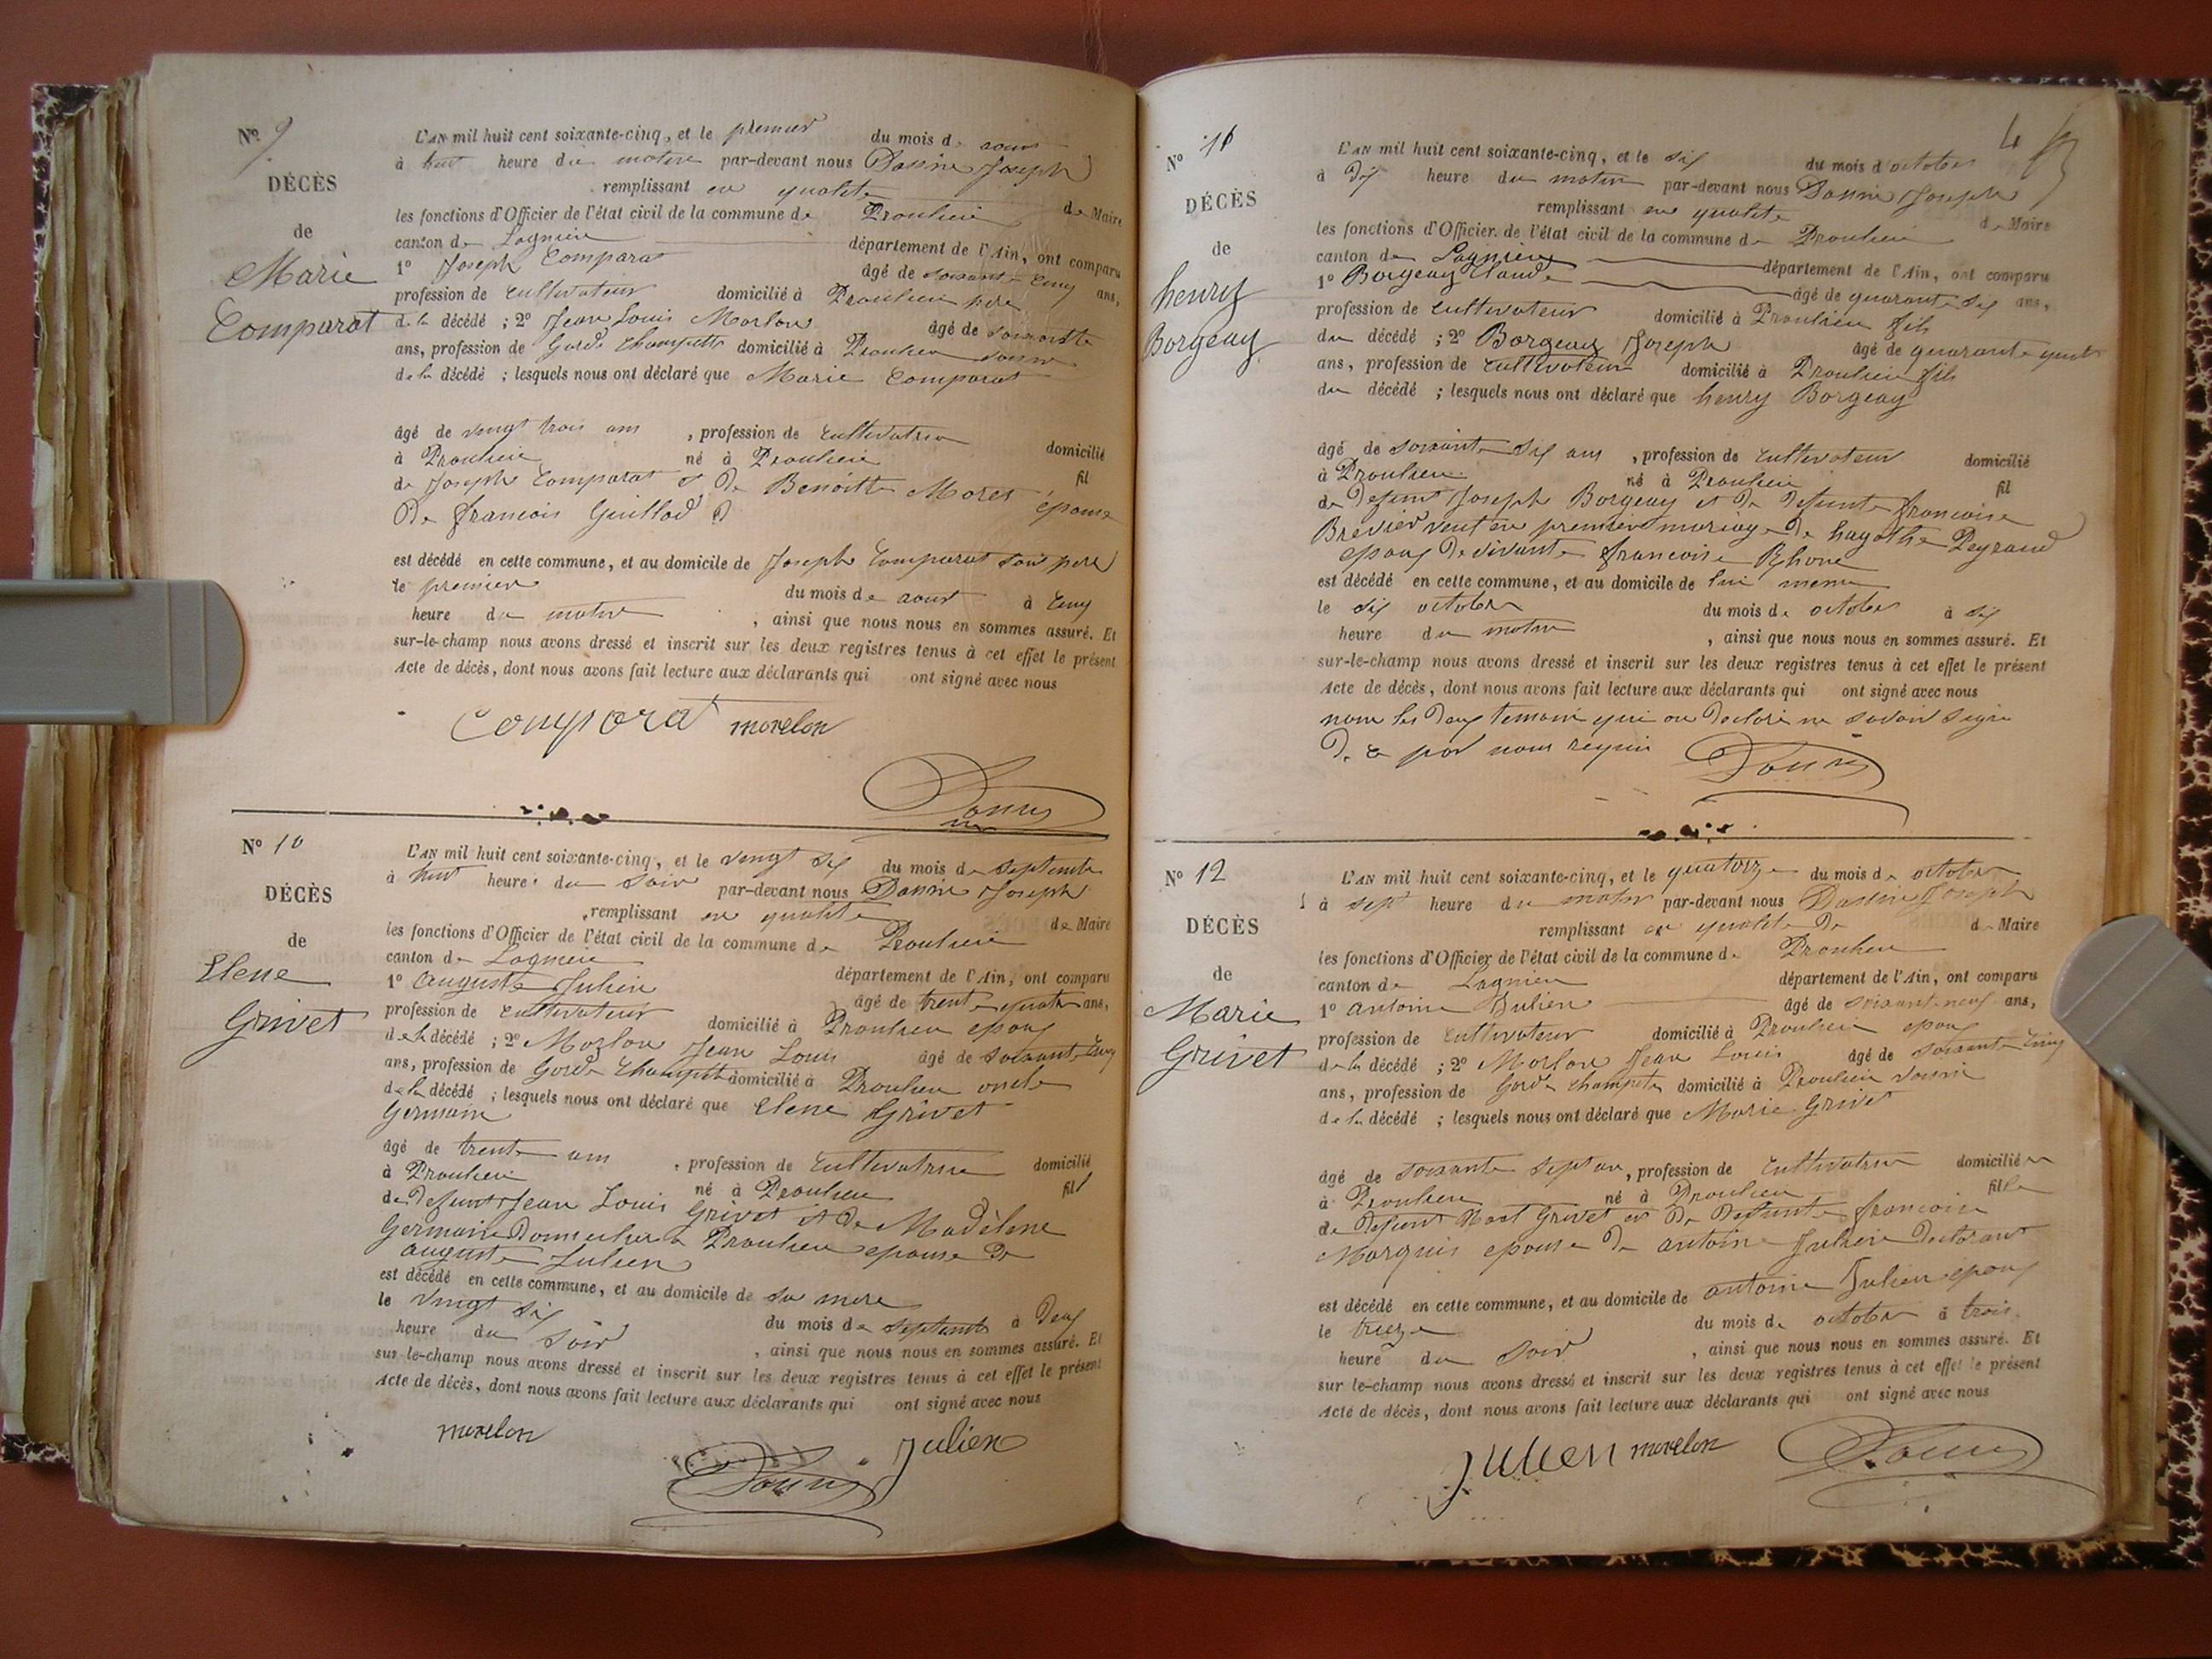 No 9
DÉCÈS
de
Marie
Comparat
L'AN mil huit cent soixante-cinq, et le premier du mois d aout
à huit heure du matin par-devant nous Joseph
remplissant en qualité de Maire
les fonctions d'Officier de l'état civil de la commune de Proulieu
canton de Lagnieu département de l'Ain, ont comparu
1º Joseph Comparat âgé de soixante cinq ans,
profession de cultivateur domicilié à Proulieu pere
de la décédé ; 2º Jean Louis Morlon âgé de soixante
ans, profession de Garde Champettr domicilié à Proulieu voisin
de la décédé ; lesquels nous ont déclaré que Marie Comparat
âgé de vingt trois ans , profession de cultivatrice domicilié
à Proulieu né à Proulieu fil
de Joseph Comparat et de Benoitte Morel épouse
De francois Guillod
est décédé en cette commune, et au domicile de Joseph Comparat son pere
le premier du mois de aout à cinq
heure du matin , ainsi que nous nous en sommes assuré. Et
sur-le-champ nous avons dressé et inscrit sur les deux registres tenus à cet effet le présent
Acte de décès, dont nous avons fait lecture aux déclarants qui ont signé avec nous
Comparat morelon
No 10
DÉCÈS
de
Elene
Grivet
L'AN mil huit cent soixante-cinq, et le vingt six du mois de septembre
à huit heure du soir par-devant nous Joseph
remplissant en qualité de Maire
les fonctions d'Officier de l'état civil de la commune de Proulieu
canton de Lagnieu département de l'Ain, ont comparu
1º auguste Julien âgé de trente quatre ans,
profession de cultivateur domicilié à Proulieu epoux
de la décédé ; 2º Morlon Jean Louis âgé de soixante cinq
ans, profession de Garde Champet domicilié à Proulieu oncle
de la décédé ; lesquels nous ont déclaré que Elene Grivet
Germain
âgé de trente ans , profession de cultivatrice domicilié
à Proulieu né à Proulieu fill
de Defunt Jean Louis Grivet et de Madèlene
Germain Domiciliée a Proulieu epouse De
auguste Julien
est décédé en cette commune, et au domicile de sa mere
le vingt six du mois de septembre à Deux
heure du soir , ainsi que nous nous en sommes assuré. Et
sur-le-champ nous avons dressé et inscrit sur les deux registres tenus à cet effet le présent
Acte de décès, dont nous avons fait lecture aux déclarants qui ont signé avec nous
morelon Julien
No 11
DÉCÈS
de
henry
Borgeay
L'AN mil huit cent soixante-cinq, et le six du mois d'octobre
à Dix heure du matin par-devant nous Joseph
remplissant en qualité de Maire
les fonctions d'Officier de l'état civil de la commune de Proulieu
canton de Lagnieu département de l'Ain, ont comparu
1º Borgeay Claude âgé de quarante six ans,
profession de cultivateur domicilié à Proulieu fils
du décédé ; 2º Borgeay Joseph âgé de quarante
ans, profession de cultivateur domicilié à Proulieu fils
du décédé ; lesquels nous ont déclaré que henry Borgeay
âgé de soixante Dix ans , profession de cultivateur domicilié
à Proulieu né à Proulieu fil
de Defunt Joseph Borgeay et De Defunte francoise
Brevier veuf en premier mariage De hagathe Peyraud
epoux De vivante francoise Rhone
est décédé en cette commune, et au domicile de lui meme
le six octobre du mois de octobre à six
heure du matin , ainsi que nous nous en sommes assuré. Et
sur-le-champ nous avons dressé et inscrit sur les deux registres tenus à cet effet le présent
Acte de décès, dont nous avons fait lecture aux déclarants qui ont signé avec nous
non les Deux temoins qui on Declaré ne savoir signé
De ce par nous requis
No 12
DÉCÈS
de
Marie
Grivet
L'AN mil huit cent soixante-cinq, et le quatorze du mois de octobre
à sept heure du matin par-devant nous Joseph
remplissant en qualité De de Maire
les fonctions d'Officier de l'état civil de la commune de Proulieu
canton de Lagnieu département de l'Ain, ont comparu
1º antoine Julien âgé de soixante neuf ans,
profession de cultivateur domicilié à Proulieu epoux
de la décédé ; 2º Morlon Jean Louis âgé de soixante cinq
ans, profession de Garde Champetr domicilié à Proulieu voisin
de la décédé ; lesquels nous ont déclaré que Marie Grivet
âgé de soixante sept an , profession de cultivatrice domicilié
à Proulieu né à Proulieu fille
de Defunt Grivet et De Defunte francoise
Marquis epouse De antoine Julien Declarant
est décédé en cette commune, et au domicile de antoine Julien epoux
le treize du mois de octobre à trois
heure du soir , ainsi que nous nous en sommes assuré. Et
sur le-champ nous avons dressé et inscrit sur les deux registres tenus à cet effet le présent
Acte de décès, dont nous avons fait lecture aux déclarants qui ont signé avec nous
Julien morelon